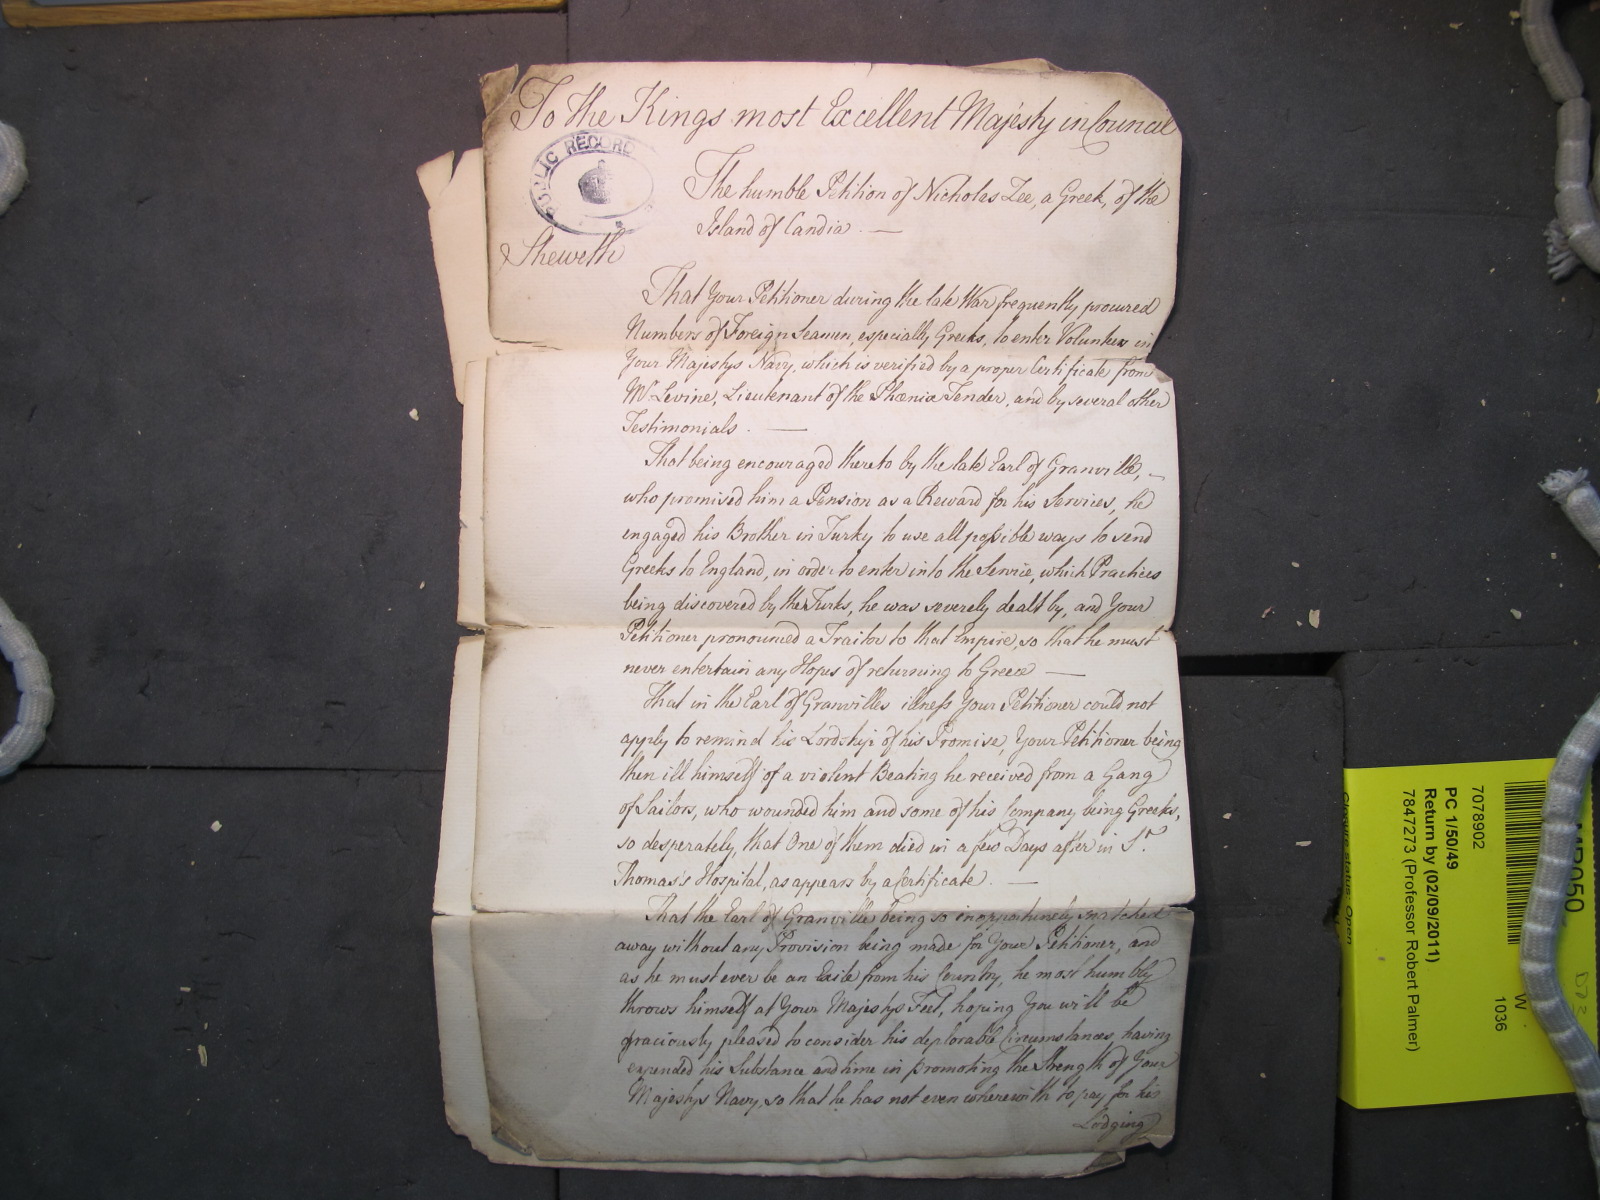 To the Kings most Excellent Majesty in Council
PUBLIC RECORD
The humble Petition of Nicholas Lee, a Greek, of the
Island of Candia. —
Sheweth
That Your Petitioner during the late War frequently procured
Numbers of Foreign Seamen, especially Greeks, to enter Volunteers in
Your Majestys Navy, which is verified by a proper Certificate from
Mr. Levine, Lieutenant of the Phœnix Tender, and by several other
Testimonials. —
That being encouraged thereto by the late Earl of Granville, —
who promised him a Pension as a Reward for his Services, he
engaged his Brother in Turky to use all possible ways to send
Greeks to England, in order to enter into the Service, which Practices
being discovered by the Turks, he was severely dealt by, and Your
Petitioner pronounced a Traitor to that Empire, so that he must
never entertain any Hopes of returning to Greece —
That in the Earl of Granvilles illness Your Petitioner could not
apply to remind his Lordship of his Promise, Your Petitioner being
then ill himself of a violent Beating he received from a Gang
of Sailors, who wounded him and some of his Company being Greeks,
so desperately, that One of them died in a few Days after in St.
Thomas's Hospital, as appears by a Certificate. —
That the Earl of Granville being so inopportunely snatched
away without any Provision being made for Your Petitioner, and
as he must ever be an Exile from his Country, he most humbly
throws himself at Your Majestys Feet, hoping You will be
graciously pleased to consider his deplorable Circumstances, having
expended his Substance and time in promoting the Strength of Your
Majestys Navy, so that he has not even wherewith to pay for his
Lodging
7078902
PC 1/50/49
Return by (02/09/2011)
7847273 (Professor Robert Palmer)
W
1036
Closure status: Open